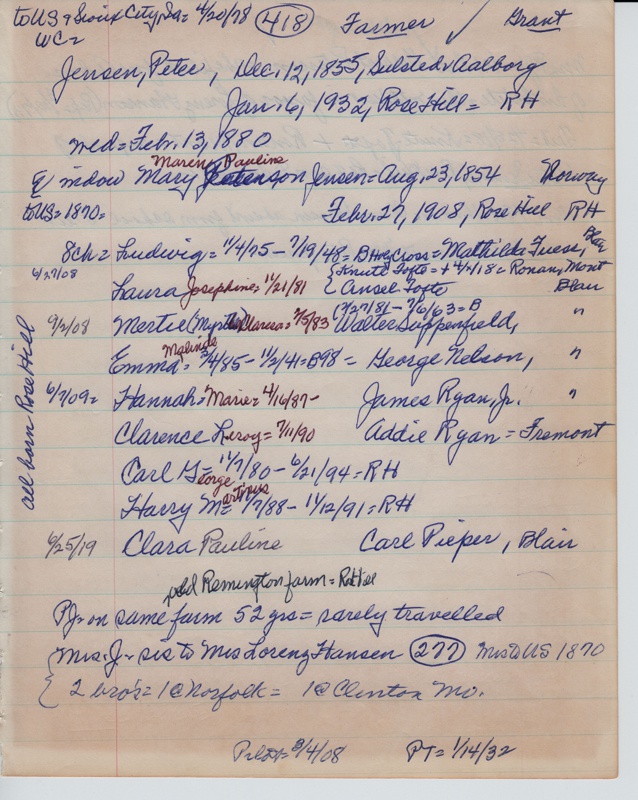 to US & Sioux City, Ia = 4/20/78 (418) Farmer ✓ Grant
WC2
Jensen, Peter, Dec. 12, 1855, Sulsted, Aalborg
Jan. 6, 1932, Rose Hill = RH
wed = Feb. 13, 1880
Marene Pauline
widow Mary Peterson Jensen = Aug. 23, 1854 Norway
to US = 1870 = Feb. 27, 1908, Rose Hill RH
8ch = Ludwig = 1/4/75 - 7/19/48 = B Hwy Cross = Mathilda Fuess, Blair
6/27/08 { Knute Tofte = + 4/2/18 = Ronan, Mont
Laura Josephine = 11/21/81 { Ansel Tofte Blair
(7/27/81 - 7/6/63 = B
9/2/08 Mertie (Myrtle) Clarissa = 7/5/83 Walter Suppenfield, "
Malinde
Emma = 3/4/85 - 11/2/41 = B98 = George Nelson, "
6/7/09 = Hannah = Marie = 4/16/87 - James Ryan, Jr. "
Clarence Leroy = 7/11/90 Addie Ryan = Fremont
Carl George = 11/7/80 - 6/21/94 = RH
Harry Martinus = 1/7/88 - 11/12/91 = RH
6/25/19 Clara Pauline Carl Pieper, Blair
all born Rose Hill
old Remington farm = Rose Hill
PJ - on same farm 52 yrs = rarely travelled
{ Mrs. J - sis to Mrs Lorenz Hansen (277) Mrs to US 1870
{ 2 bro's = 1 @ Norfolk = 1 @ Clinton Mo.
Pilot = 3/4/08 PT = 1/14/32